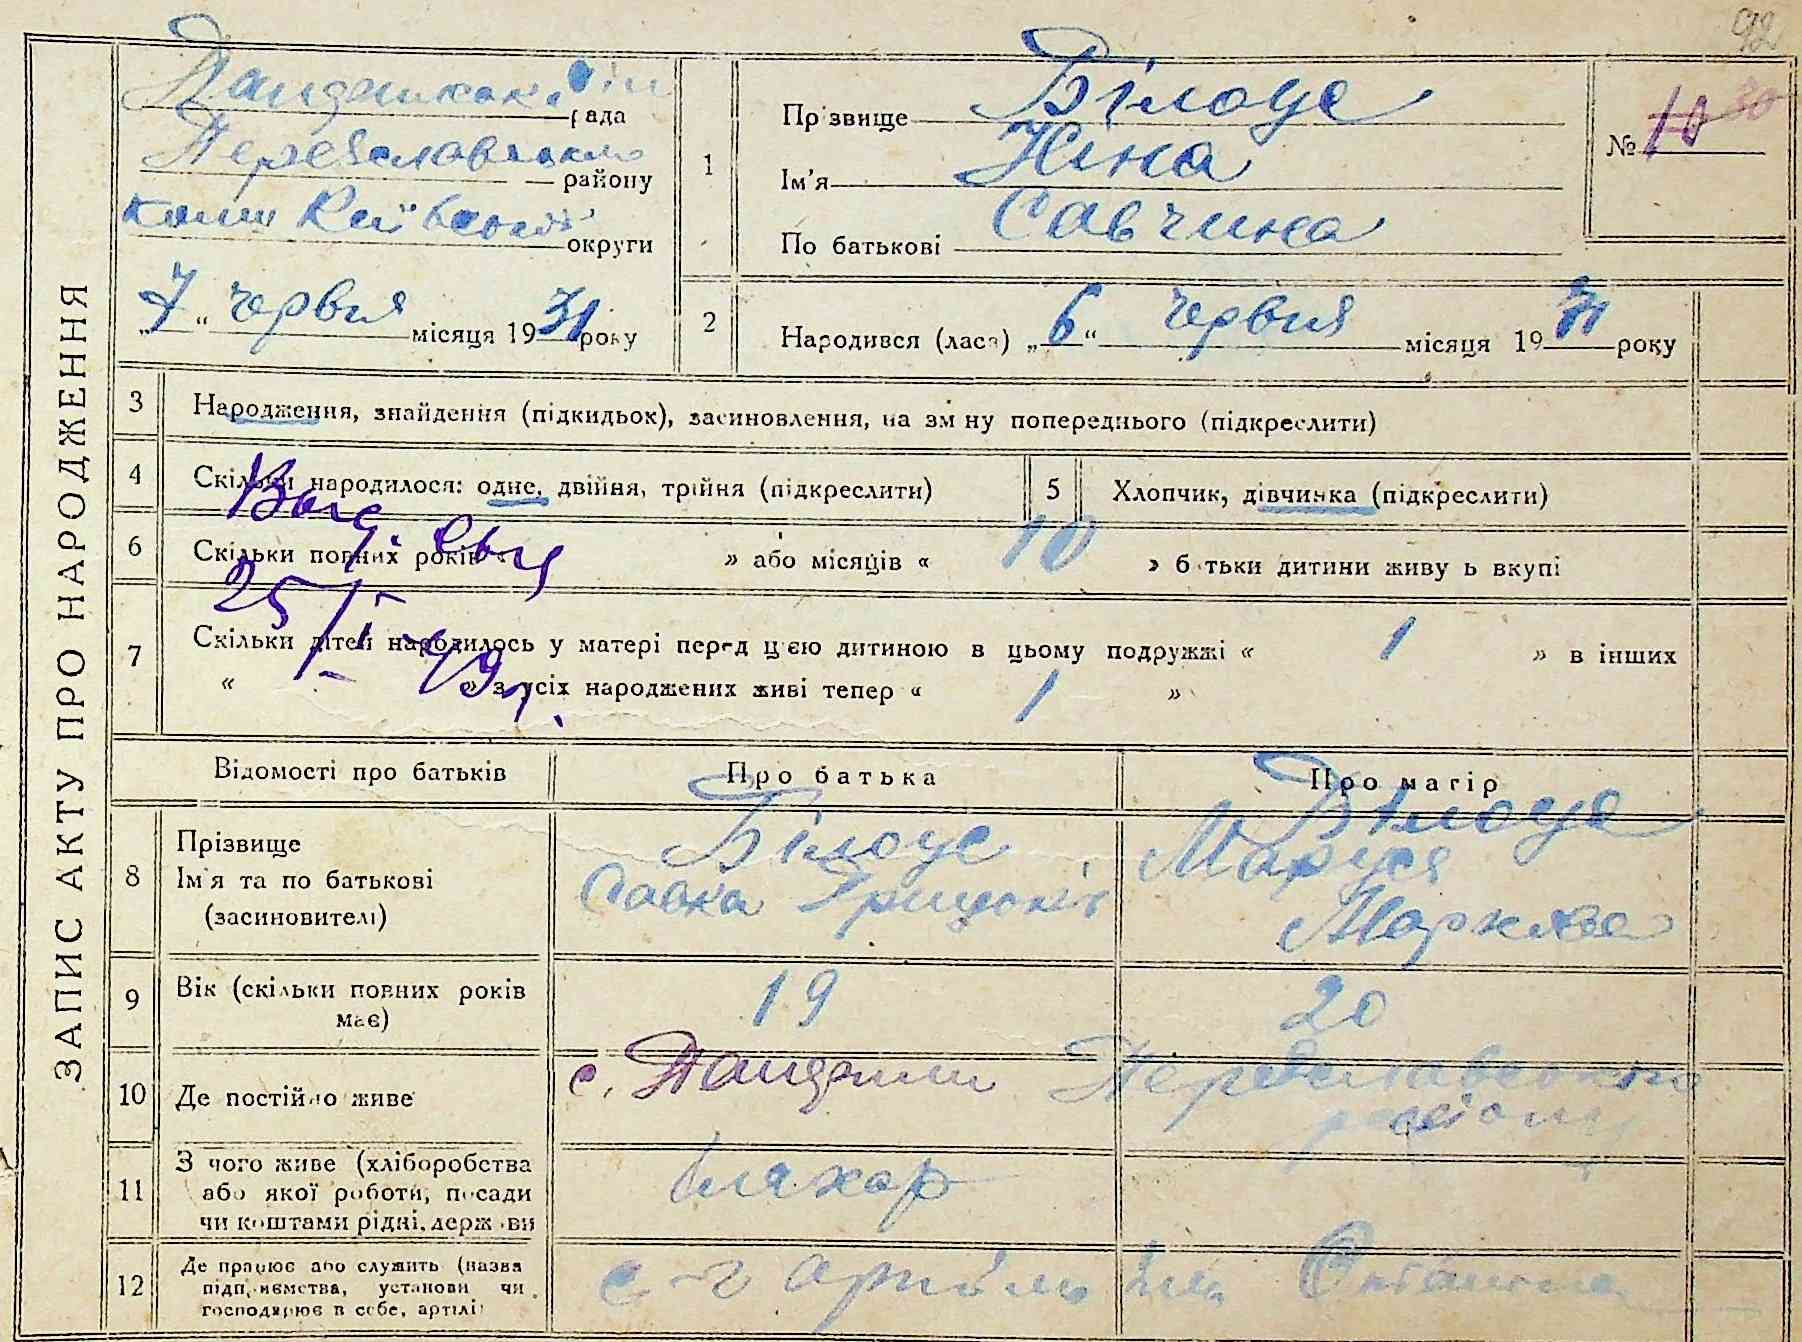 92
ЗАПИС АКТУ ПРО НАРОДЖЕННЯ
рада
Переяславського району
Київської округи
„7“ червня місяця 1931 року
1
Прізвище Білоус
Ім'я Ніна
По батькові Савчина
№ 10 30
2
Народився (лася) „6“ червня місяця 1931 року
3 Народження, знайдення (підкидьок), засиновлення, на зміну попереднього (підкреслити)
4 Скільки народилося: одне, двійня, трійня (підкреслити)
5 Хлопчик, дівчинка (підкреслити)
6 Скільки повних років « » або місяців « 10 » батьки дитини живуть вкупі
7 Скільки дітей народилось у матері перед цією дитиною в цьому подружжі « 1 » в інших
« » з усіх народжених живі тепер « 1 »
25/I-49р.
Відомості про батьків
Про батька
Про матір
8 Прізвище
Ім'я та по батькові
(засиновителі)
Білоус
Савка Грицьків
Білоус
Маруся
Марківна
9 Вік (скільки повних років
має)
19
20
10 Де постійно живе
с. Пандашми Переяславського
району
11 З чого живе (хліборобства
або якої роботи, посади
чи коштами рідні, держави
12 Де працює або служить (назва
підприємства, установи чи
господарює в себе, артілі)
с-г артіль ім.